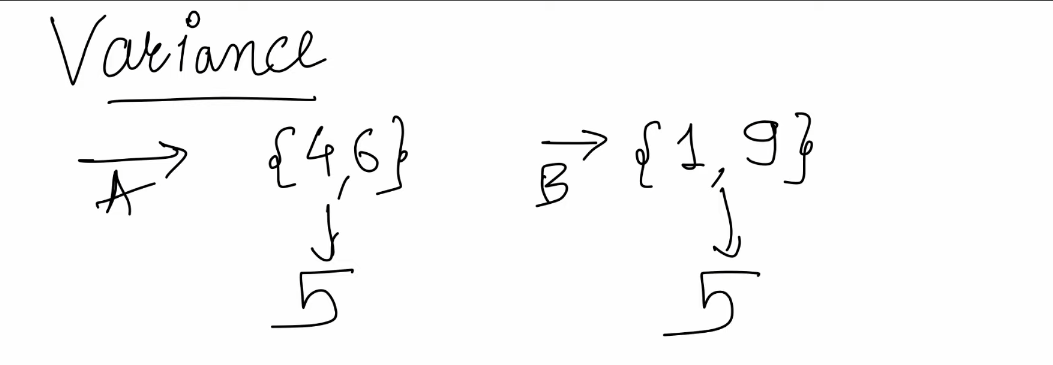 Variance
A {4,6} B {1,9}
5 5